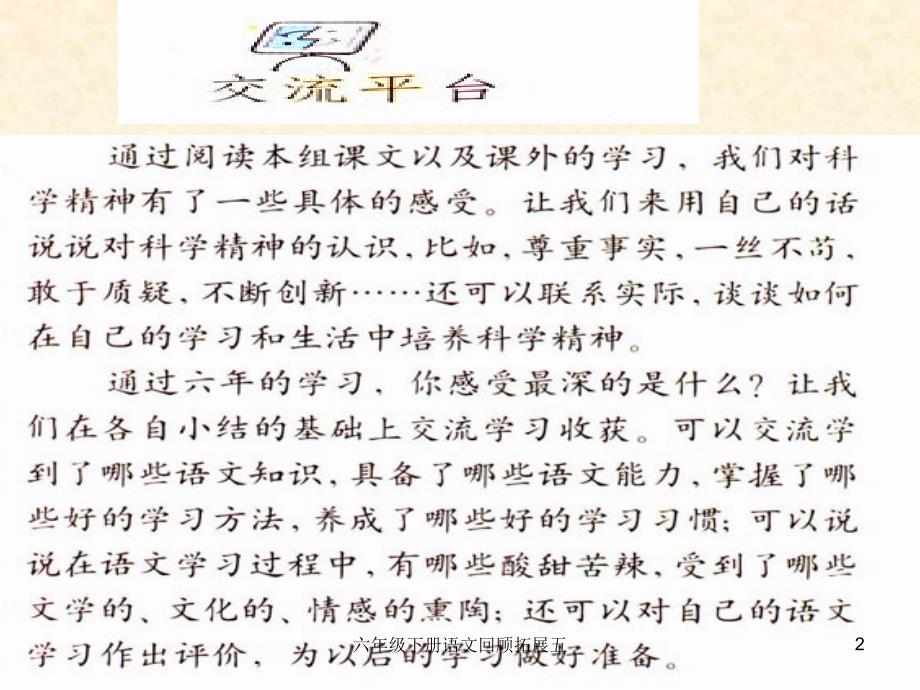 交流平台
通过阅读本组课文以及课外的学习，我们对科
学精神有了一些具体的感受。让我们来用自己的话
说说对科学精神的认识，比如，尊重事实，一丝不苟，
敢于质疑，不断创新……还可以联系实际，谈谈如何
在自己的学习和生活中培养科学精神。
通过六年的学习，你感受最深的是什么？让我
们在各自小结的基础上交流学习收获。可以交流学
到了哪些语文知识，具备了哪些语文能力，掌握了哪
些好的学习方法，养成了哪些好的学习习惯；可以说
说在语文学习过程中，有哪些酸甜苦辣，受到了哪些
文学的、文化的、情感的熏陶；还可以对自己的语文
学习作出评价，为以后的学习做好准备。
六年级下册语文回顾拓展五
2